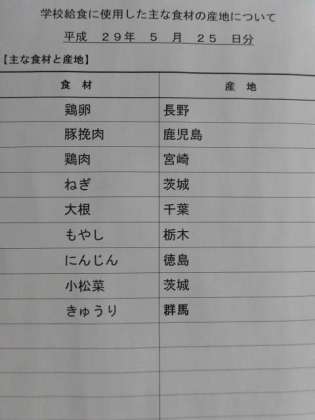 学校給食に使用した主な食材の産地について
平成 29年 5 月 25 日分
【主な食材と産地】
食材 産地
鶏卵 長野
豚挽肉 鹿児島
鶏肉 宮崎
ねぎ 茨城
大根 千葉
もやし 栃木
にんじん 徳島
小松菜 茨城
きゅうり 群馬